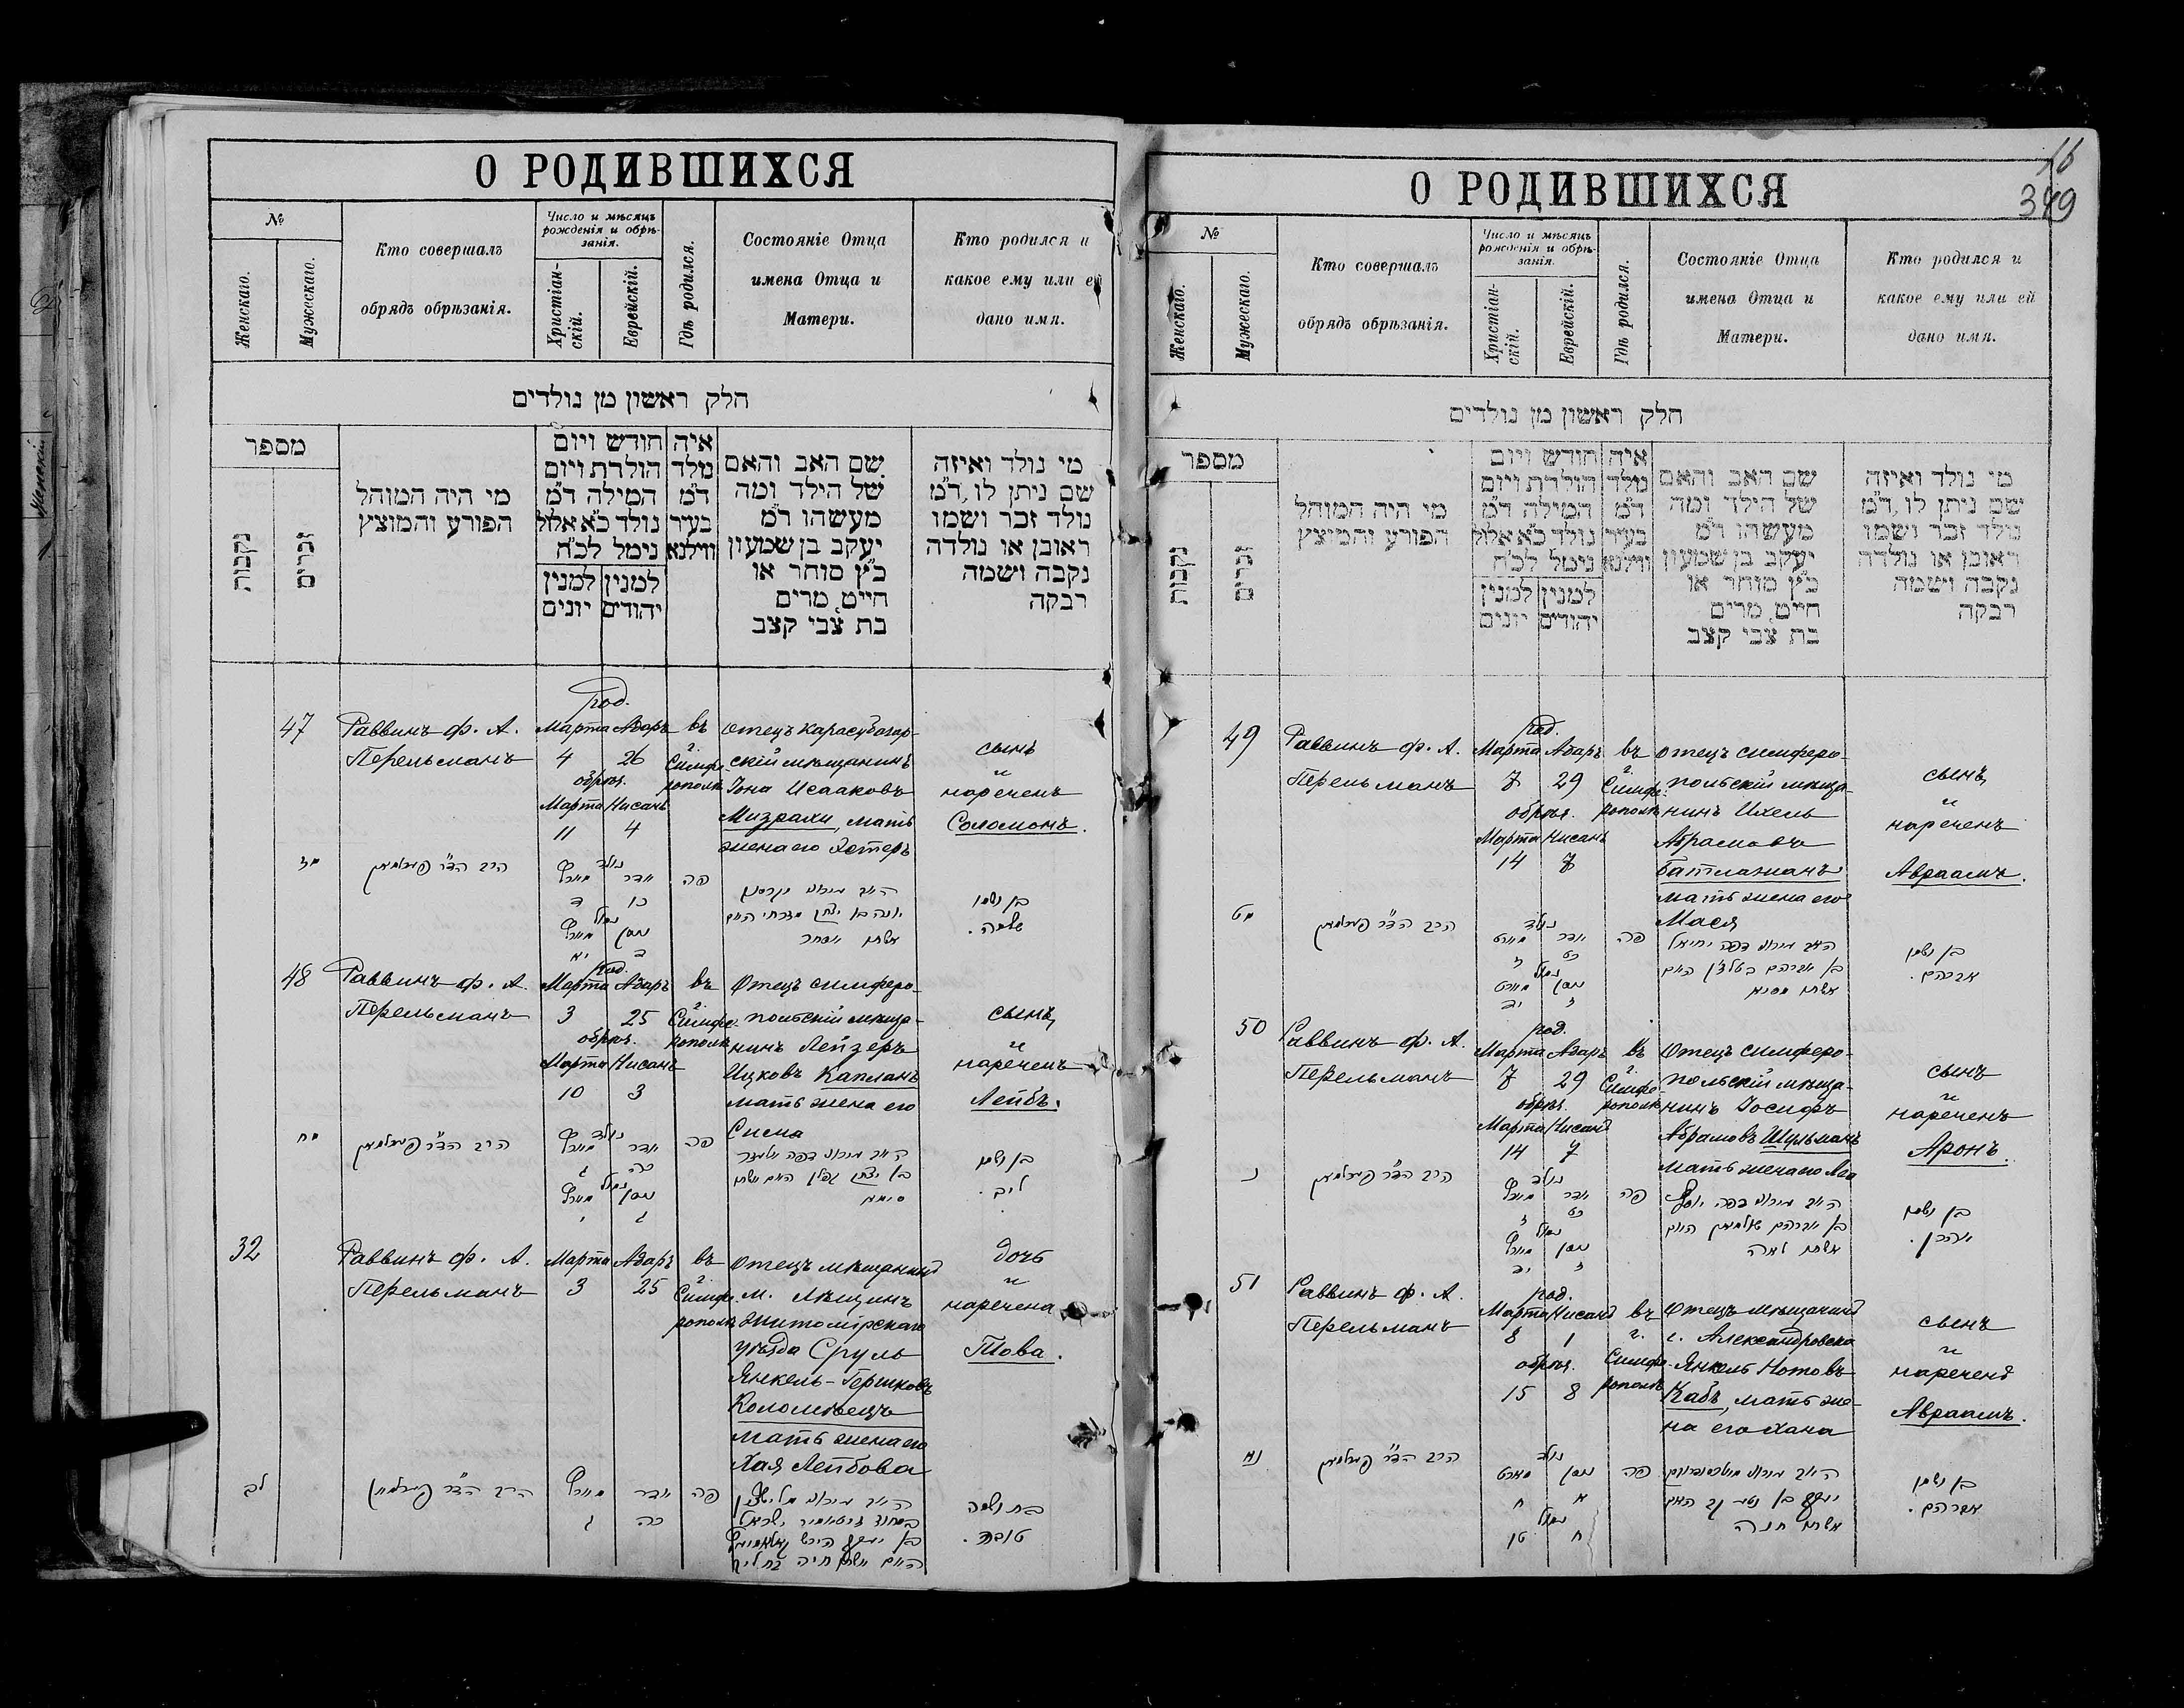 О РОДИВШИХСЯ
№
Женскаго.
Мужескаго.
Кто совершалъ
обрядъ обрѣзанія.
Число и мѣсяцъ
рожденія и обрѣ-
занія.
Христіан-
скій.
Еврейскій.
Гдѣ родился.
Состояніе Отца
имена Отца и
Матери.
Кто родился и
какое ему или ей
дано имя.
חלק ראשון מן נולדים
מספר
נקבות
זכרים
מי היה המוהל
הפורע והמוצץ
חודש ויום
הולדת ויום
המילה ד״מ
נולד כ״א אלול
נימל לכ״ח
למנין יהודים
למנין יונים
איה
נולד
ד״מ
בעיר
ווילנא
שם האב והאם
של הילד ומה
מעשהו ד״מ
יעקב בן שמעון
כ״ץ סוחר או
חייט, מרים
בת צבי קצב
מי נולד ואיזה
שם ניתן לו, ד״מ
נולד זכר ושמו
ראובן או נולדה
נקבה ושמה
רבקה
47
Раввинъ Ф. А.
Перельманъ
род.
Марта Адаръ
4 26
обрѣз.
Марта Нисанъ
11 4
въ
г.
Симфе-
рополѣ
Отецъ Карасубазар-
скій мѣщанинъ
Іона Исааковъ
Мизрахи, мать
жена его Эстеръ
сынъ
и
нареченъ
Соломонъ.
מז
הרב הד״ר פערלמאן
נולד
אדר מערץ
כו ד
נמול
ניסן מערץ
ד יא
פה
בן ושמו
שלמה.
48
Раввинъ Ф. А.
Перельманъ
род.
Марта Адаръ
3 25
обрѣз.
Марта Нисанъ
10 3
въ
г.
Симфе-
рополѣ
Отецъ симферо-
польскій мѣща-
нинъ Лейзеръ
Ицковъ Капланъ
мать жена его
Сима
сынъ
и
нареченъ
Лейбъ.
מח
הרב הד״ר פערלמאן
נולד
אדר מערץ
כה ג
נמול
ניסן מערץ
ג י
פה
בן ושמו
ליב.
32
Раввинъ Ф. А.
Перельманъ
Марта Адаръ
3 25
въ
г.
Симфе-
рополѣ
Отецъ мѣщанинъ
м. Лѣщинъ
Житомірскаго
уѣзда Сруль
Янкель-Гершковъ
Коломѣецъ
мать жена его
Хая Лейбова
дочь
и
наречена
Това.
לב
הרב הד״ר פערלמאן
אדר מערץ
כה ג
פה
בת ושמה
טובה.
16
349
О РОДИВШИХСЯ
№
Женскаго.
Мужескаго.
Кто совершалъ
обрядъ обрѣзанія.
Число и мѣсяцъ
рожденія и обрѣ-
занія.
Христіан-
скій.
Еврейскій.
Гдѣ родился.
Состояніе Отца
имена Отца и
Матери.
Кто родился и
какое ему или ей
дано имя.
חלק ראשון מן נולדים
מספר
נקבות
זכרים
מי היה המוהל
הפורע והמוצץ
חודש ויום
הולדת ויום
המילה ד״מ
נולד כ״א אלול
נימל לכ״ח
למנין יהודים
למנין יונים
איה
נולד
ד״מ
בעיר
ווילנא
שם האב והאם
של הילד ומה
מעשהו ד״מ
יעקב בן שמעון
כ״ץ סוחר או
חייט, מרים
בת צבי קצב
מי נולד ואיזה
שם ניתן לו, ד״מ
נולד זכר ושמו
ראובן או נולדה
נקבה ושמה
רבקה
49
Раввинъ Ф. А.
Перельманъ
род.
Марта Адаръ
7 29
обрѣз.
Марта Нисанъ
14 7
въ
г.
Симфе-
рополѣ
Отецъ симферо-
польскій мѣща-
нинъ Ихель
Абрамовъ
Батлажанъ
мать жена его
Мася
сынъ
и
нареченъ
Авраамъ.
מט
הרב הד״ר פערלמאן
נולד
אדר מערץ
כט ז
נמול
ניסן מערץ
ז יד
פה
בן ושמו
אברהם.
50
Раввинъ Ф. А.
Перельманъ
род.
Марта Адаръ
7 29
обрѣз.
Марта Нисанъ
14 7
въ
г.
Симфе-
рополѣ
Отецъ симферо-
польскій мѣща-
нинъ Іосифъ
Абрамовъ Шульманъ
мать жена его Леа
сынъ
и
нареченъ
Аронъ.
נ
הרב הד״ר פערלמאן
נולד
אדר מערץ
כט ז
נמול
ניסן מערץ
ז יד
פה
בן ושמו
אהרן.
51
Раввинъ Ф. А.
Перельманъ
род.
Марта Нисанъ
8 1
обрѣз.
15 8
въ
г.
Симфе-
рополѣ
Отецъ мѣщанинъ
г. Александровска
Янкель Нотовъ
Кабъ, мать же-
на его Хана
сынъ
и
нареченъ
Авраамъ.
נא
הרב הד״ר פערלמאן
נולד
ניסן מערץ
א ח
נמול
ח טו
פה
בן ושמו
אברהם.